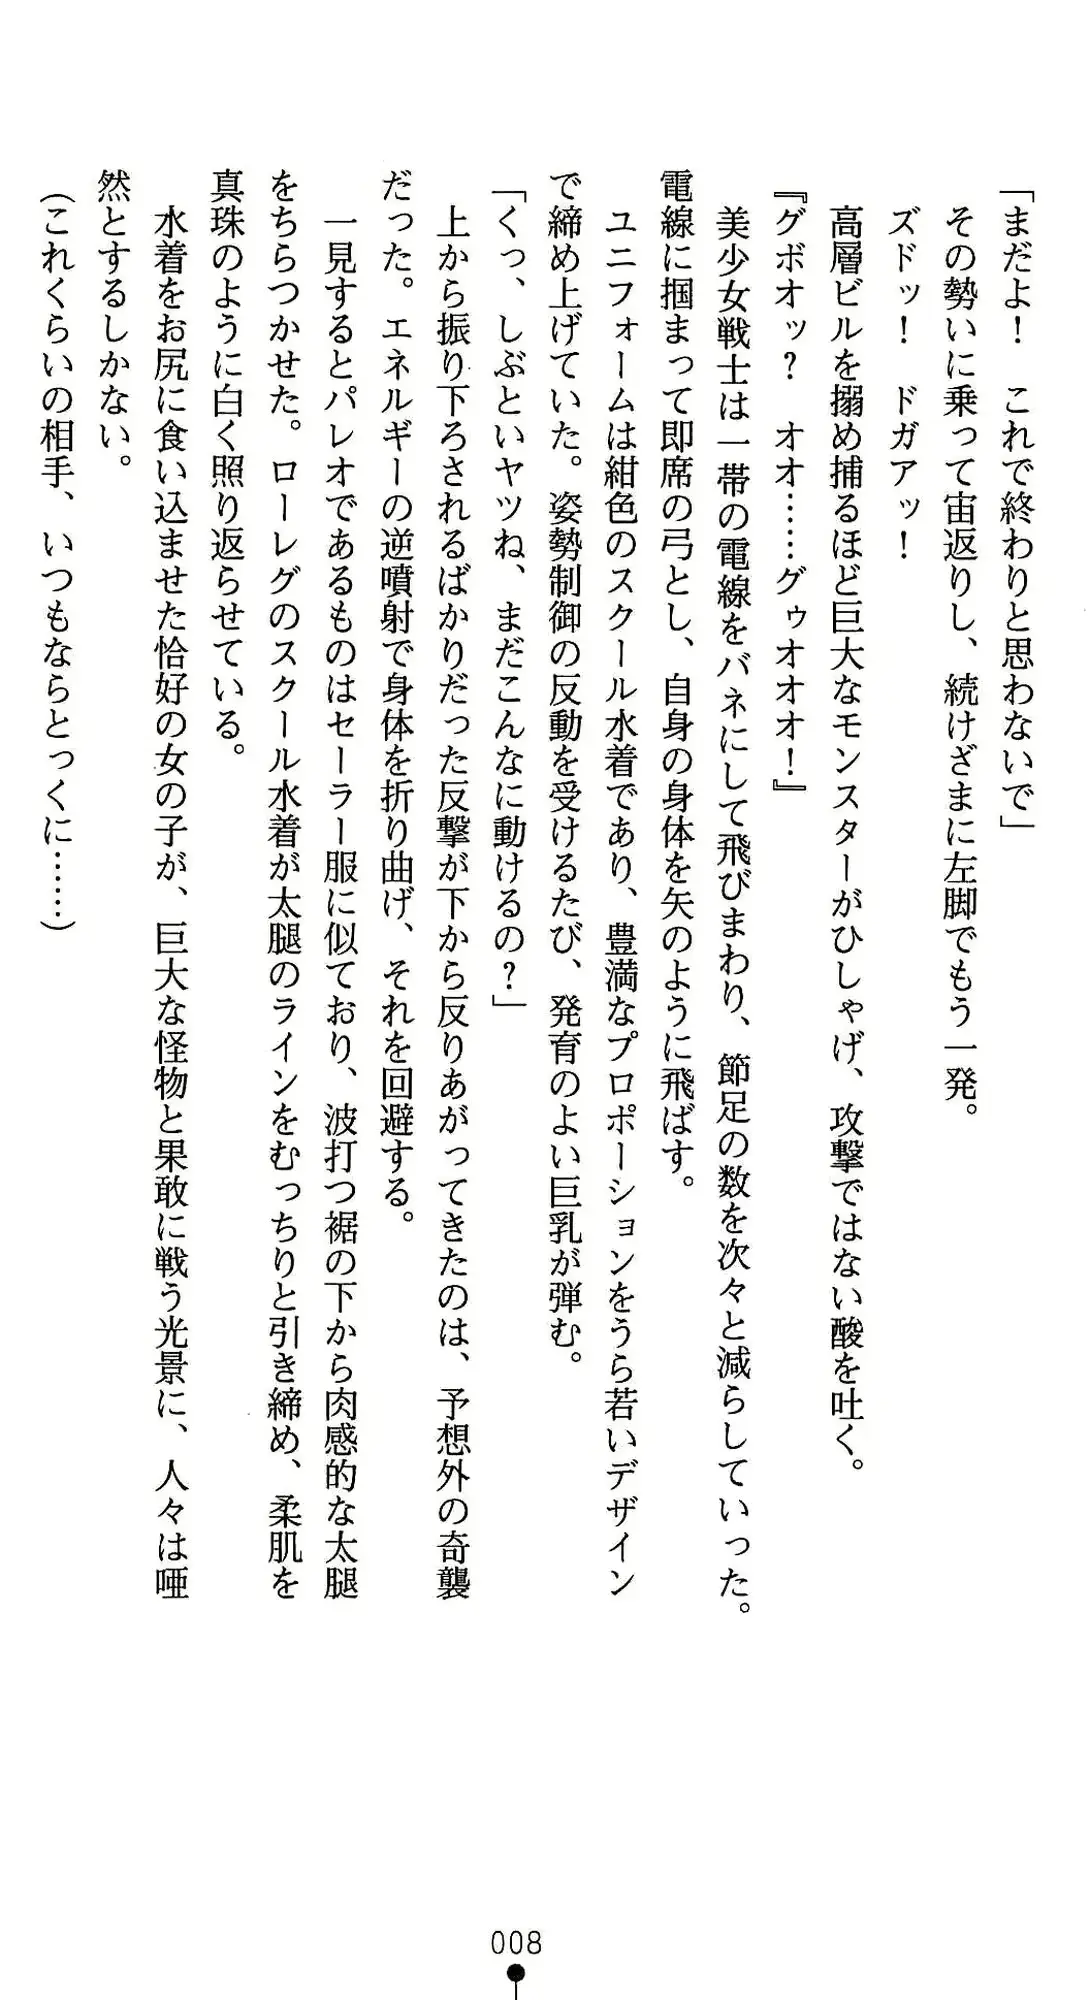 「まだよ！　これで終わりと思わないで」
その勢いに乗って宙返りし、続けざまに左脚でもう一発。
ズドッ！　ドガアッ！
高層ビルを搦め捕るほど巨大なモンスターがひしゃげ、攻撃ではない酸を吐く。
『グボオッ？　オオ……グゥオオオ！』
美少女戦士は一帯の電線をバネにして飛びまわり、節足の数を次々と減らしていった。
電線に掴まって即席の弓とし、自身の身体を矢のように飛ばす。
ユニフォームは紺色のスクール水着であり、豊満なプロポーションをうら若いデザイン
で締め上げていた。姿勢制御の反動を受けるたび、発育のよい巨乳が弾む。
「くっ、しぶといヤツね、まだこんなに動けるの？」
上から振り下ろされるばかりだった反撃が下から反りあがってきたのは、予想外の奇襲
だった。エネルギーの逆噴射で身体を折り曲げ、それを回避する。
一見するとパレオであるものはセーラー服に似ており、波打つ裾の下から肉感的な太腿
をちらつかせた。ローレグのスクール水着が太腿のラインをむっちりと引き締め、柔肌を
真珠のように白く照り返らせている。
水着をお尻に食い込ませた恰好の女の子が、巨大な怪物と果敢に戦う光景に、人々は唖
然とするしかない。
（これくらいの相手、いつもならとっくに……）
008